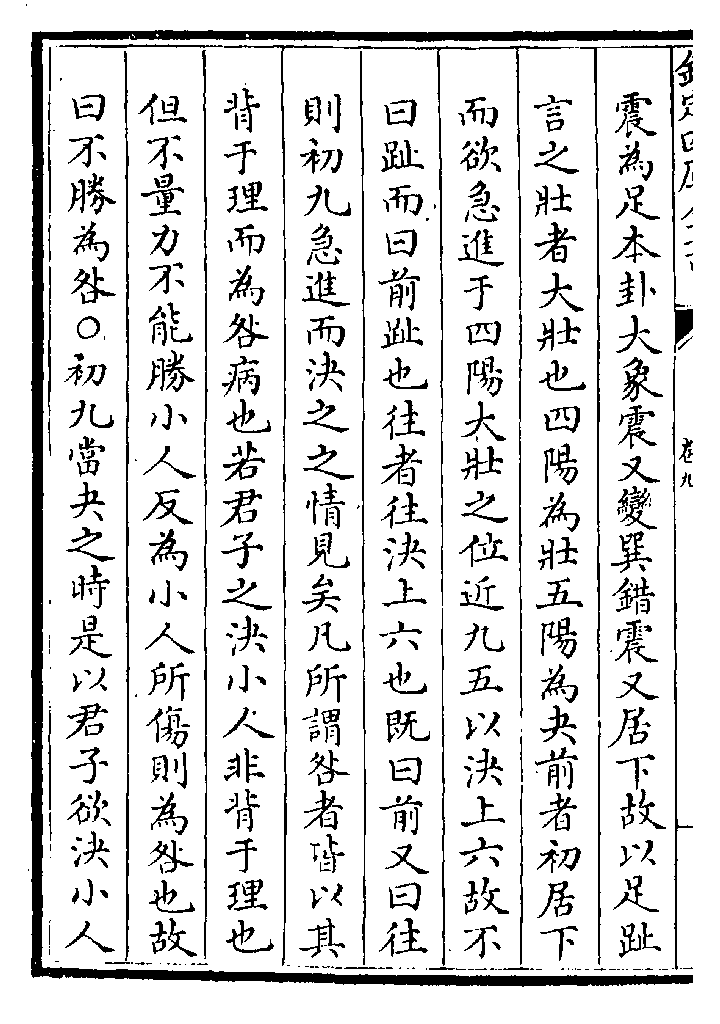 震為足本卦大象震又變巽錯震又居下故以足趾
言之壯者大壯也四陽為壯五陽為夬前者初居下
而欲急進于四陽大壯之位近九五以決上六故不
曰趾而曰前趾也往者往決上六也既曰前又曰往
則初九急進而決之之情見矣凡所謂咎者皆以其
背于理而為咎病也若君子之決小人非背于理也
但不量力不能勝小人反為小人所傷則為咎也故
曰不勝為咎○初九當夬之時是以君子欲決小人
卷九